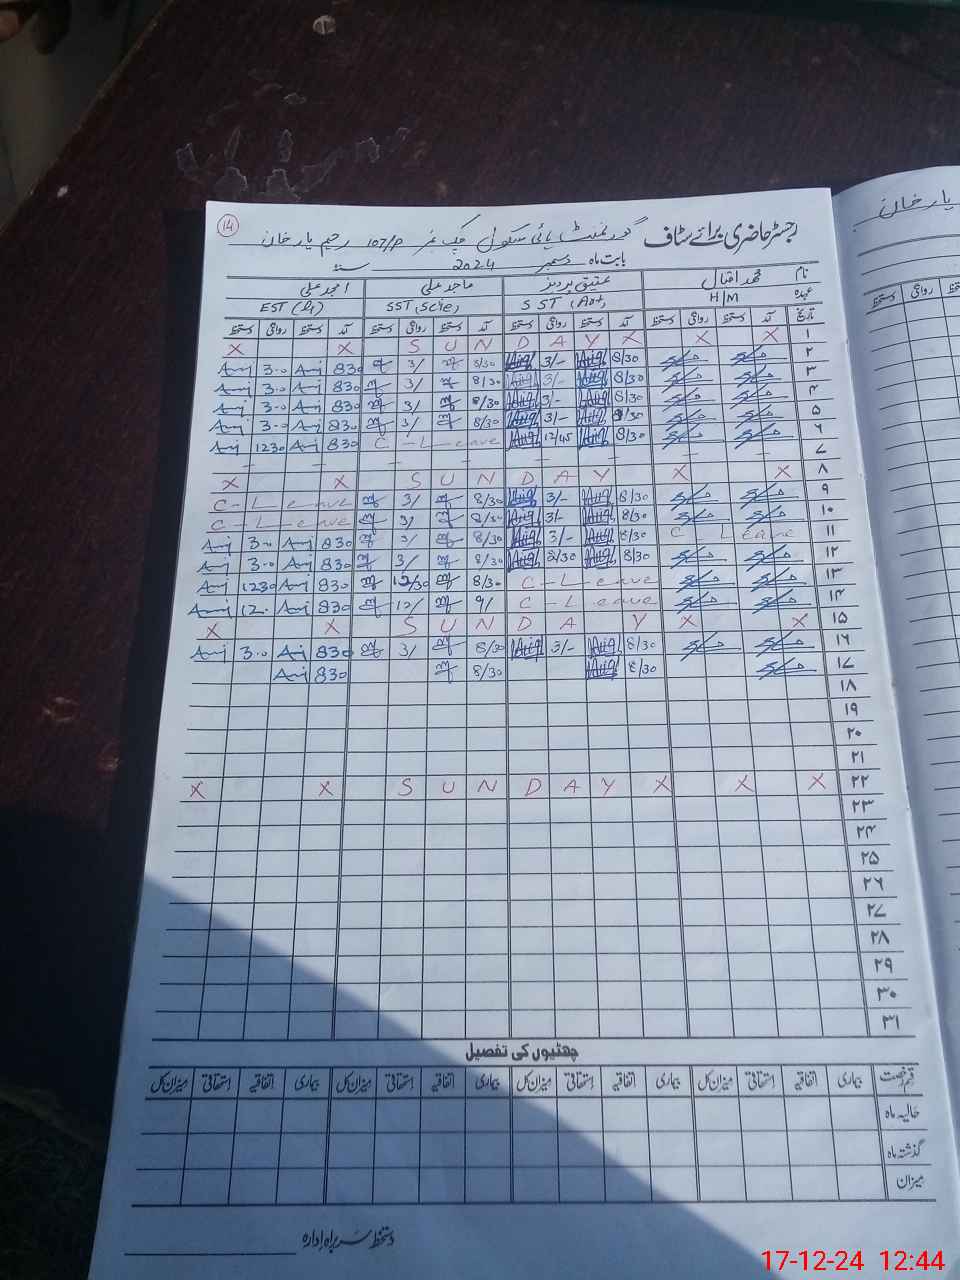 14
رجسٹر حاضری برائے سٹاف گورنمنٹ ہائی سکول چک نمبر 107/P رحیم یار خان
بابت ماہ دسمبر 2024 سنہ
نام محمد اقبال عتیق پرویز ماجد علی امجد علی
عہدہ H/M SST (Art) SST (Scie) EST
تاریخ آمد دستخط روانگی دستخط آمد دستخط روانگی دستخط آمد دستخط روانگی دستخط آمد دستخط روانگی دستخط
۱ X X S U N D A Y X X X
۲ 8/30 3/- 8/30 3/ 830 3.00
۳ 8/30 3/- 8/30 3/ 830 3.00
۴ 8/30 3/- 8/30 3/ 830 3.00
۵ 8/30 3/- 8/30 3/ 830 3.00
۶ 8/30 12/45 C - L - eave 830 1230
۷ – – – – – – –
۸ X X S U N D A Y X X
۹ 8/30 3/- 8/30 3/ C - L - eave
۱۰ 8/30 3/- 8/30 3/ C - L - eave
۱۱ C - L - eave 8/30 3/- 8/30 3/ 830 3.00
۱۲ 8/30 2/30 8/30 3/ 830 3.00
۱۳ C - L - eave 8/30 12/30 830 1230
۱۴ C - L - eave 9/ 12/ 830 12.
۱۵ X X S U N D A Y X X
۱۶ 8/30 3/- 8/30 3/ 830 3.00
۱۷ 8/30 8/30 830
۱۸
۱۹
۲۰
۲۱
۲۲ X X S U N D A Y X X X
۲۳
۲۴
۲۵
۲۶
۲۷
۲۸
۲۹
۳۰
۳۱
چھٹیوں کی تفصیل
قسم رخصت بیماری اتفاقیہ استحقاقی میزان کل بیماری اتفاقیہ استحقاقی میزان کل بیماری اتفاقیہ استحقاقی میزان کل بیماری اتفاقیہ استحقاقی میزان کل
حالیہ ماہ
گذشتہ ماہ
میزان
دستخط سربراہ ادارہ
یار خان
دستخط روانگی دستخط
17-12-24 12:44